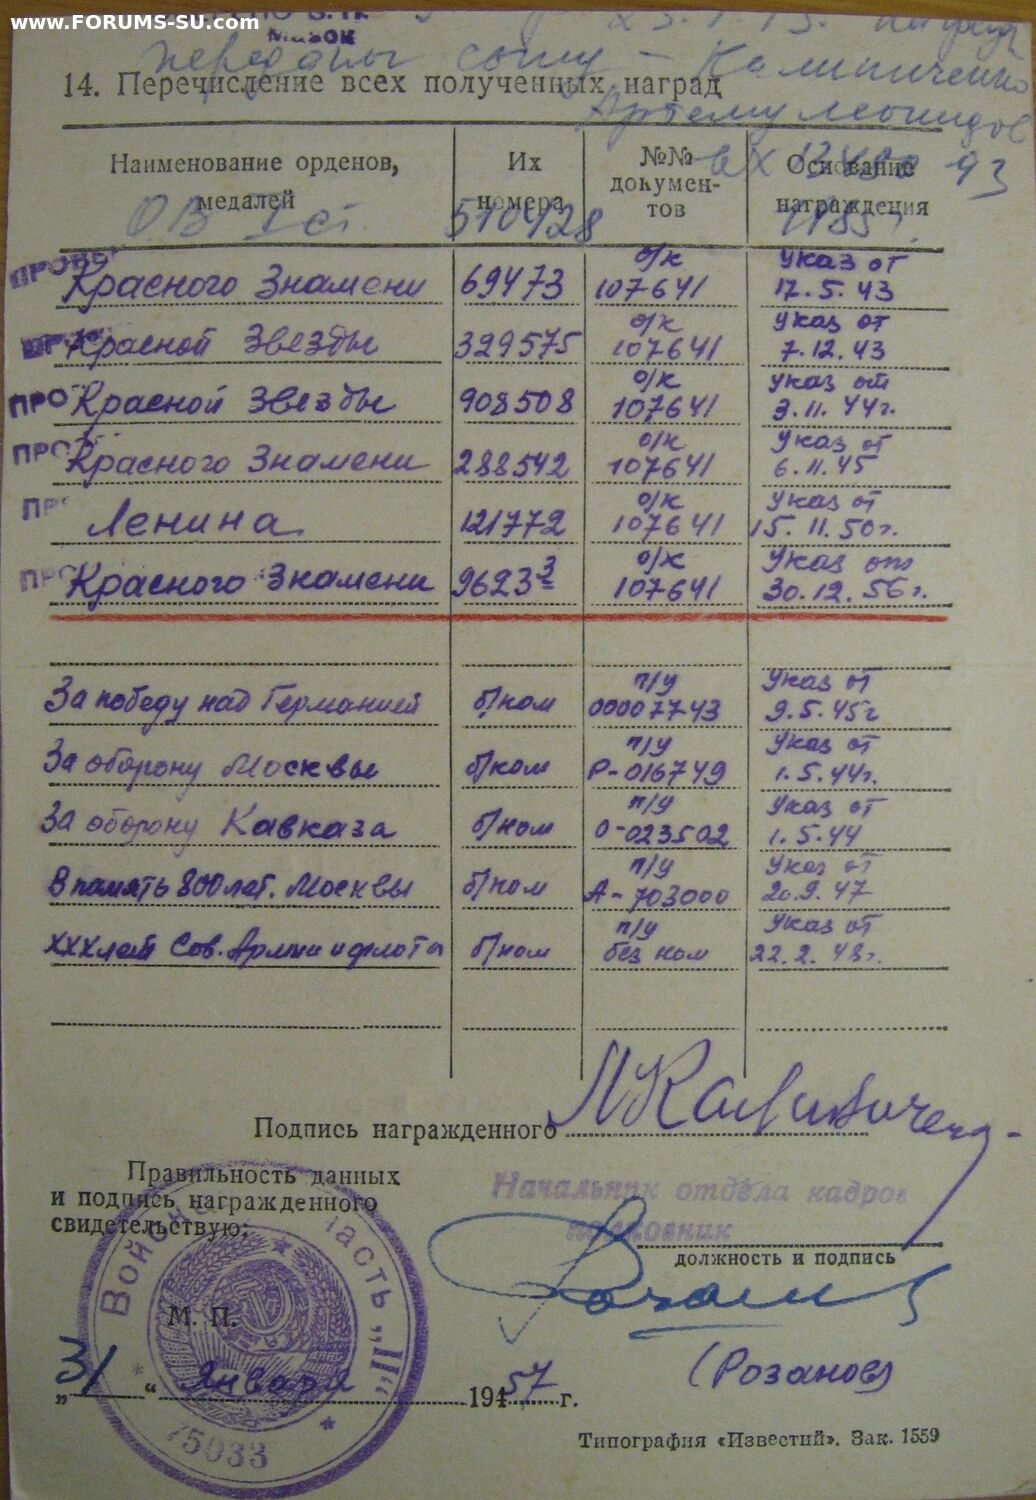 www.FORUMS-SU.com
передать сыну - Калиниченко
14. Перечисление всех полученных наград
Артему Леонидов
Наименование орденов, медалей Их номера №№ документов Основание награждения
ОВ I ст. 510428 1985 г.
Красного Знамени 69473 о/к 107641 Указ от 17.5.43
Красной Звезды 329575 о/к 107641 Указ от 7.12.43
Красной Звезды 908508 о/к 107641 Указ от 3.11.44г.
Красного Знамени 288542 о/к 107641 Указ от 6.11.45
Ленина 121772 о/к 107641 Указ от 15.11.50г.
Красного Знамени 96233 о/к 107641 Указ от 30.12.56г.
За победу над Германией б/ном п/у 00007743 Указ от 9.5.45г
За оборону Москвы б/ном п/у Р-016749 Указ от 1.5.44г.
За оборону Кавказа б/ном п/у О-023502 Указ от 1.5.44
В память 800лет. Москвы б/ном п/у А-703000 Указ от 20.9.47
XXXлет Сов. Армии и флота б/ном п/у без ном Указ от 22.2.48г.
Подпись награжденного Л Калиниченко
Правильность данных
и подпись награжденного
свидетельствую:
Начальник отдела кадров
полковник
должность и подпись
М. П.
„31“ Января 1957 г.
(Розанов)
75033
Типография «Известий». Зак. 1559